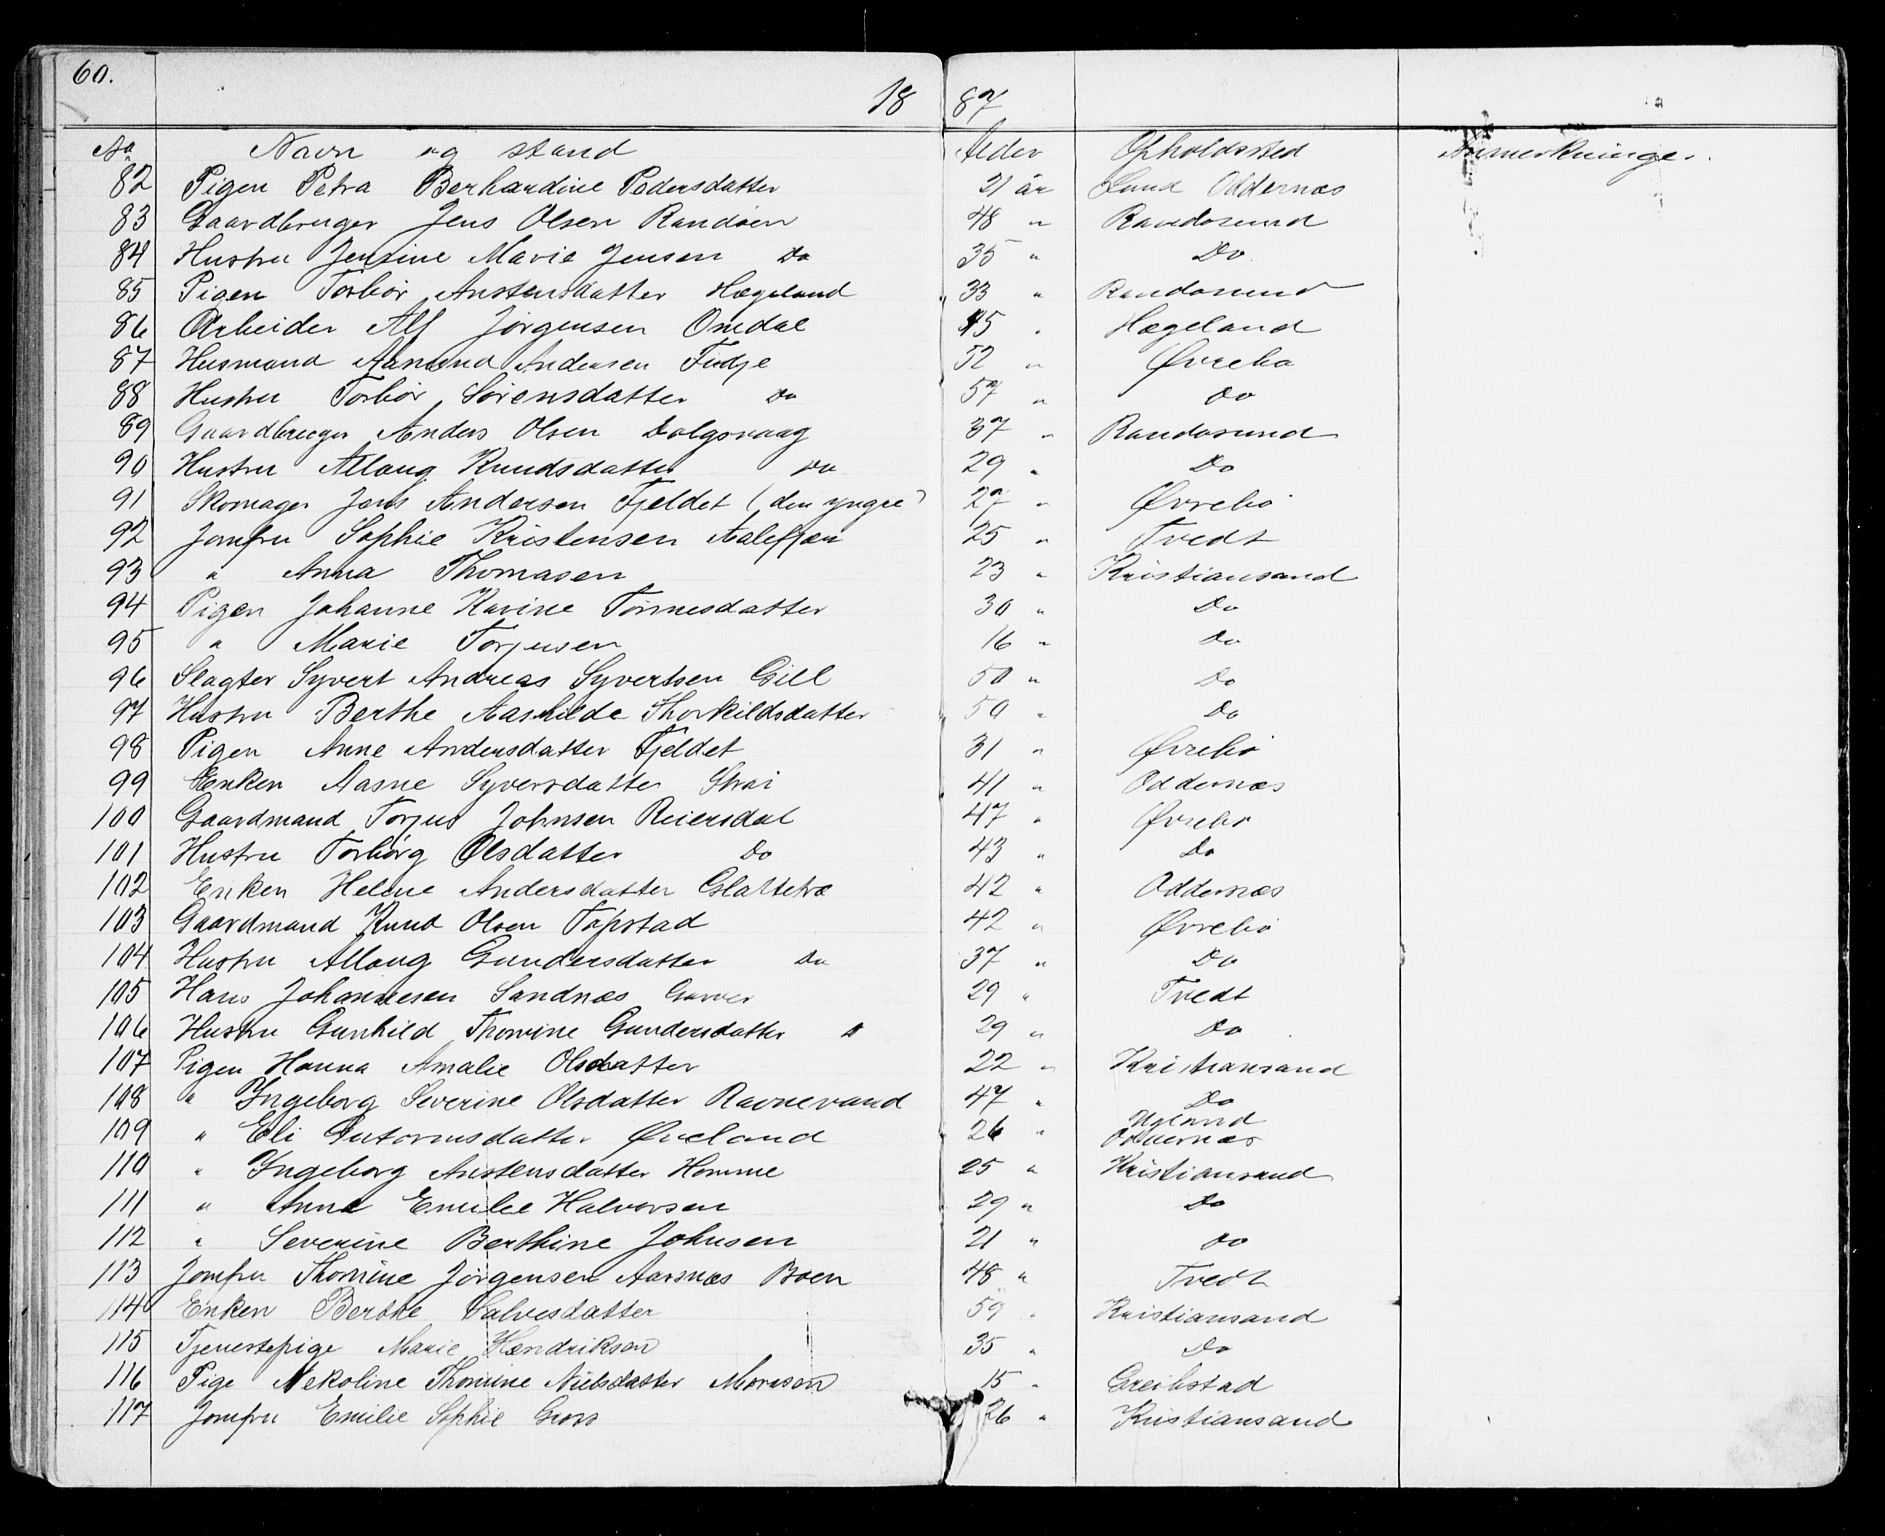 60.
18 87
No Navn og stand Alder Opholdssted Anmerkninger.
82 Pigen Petra Berhardine Pedersdatter 21 år Lund Oddernæs
83 Gaardbruger Jens Olsen Randøen 48 " Randøsund
84 Hustru Jensine Marie Jensen Do 35 " Do.
85 Pigen Torbør Anstensdatter Hægeland 33 " Randøsund
86 Arbeider Alf Jørgensen Omdal 45 " Hægeland
87 Husmand Aanund Andersen Fidje 52 " Øvrebø
88 Hustru Torbør Sørensdatter Do 57 " Do
89 Gaardbruger Anders Olsen Dolgsvaag 37 " Randøsund
90 Hustru Allaug Knudsdatter Do 29 " Do
91 Skomager Jens Andersen Fjeldet (den yngre) 27 " Øvrebø
92 Jomfru Sophie Kristensen Aalefjær 25 " Tvedt
93 " Anna Thomasen 23 " Kristiansand
94 Pigen Johanne Karine Tønnesdatter 30 " Do
95 " Marie Torjusen 16 " Do
96 Slagter Syvert Andreas Syvertsen Gill 50 " Do
97 Hustru Berthe Aashilde Thorkildsdatter 50 " Do
98 Pigen Anne Andersdatter Fjeldet 31 " Øvrebø
99 Enken Aasne Syversdatter Strai 41 " Oddernæs
100 Gaardmand Torjus Johnsen Reiersdal 47 " Øvrebø
101 Hustru Torbørg Olsdatter Do 43 " Do
102 Enken Helene Andersdatter Glattetræ 42 " Oddernæs
103 Gaardmand Knud Olsen Topstad 42 " Øvrebø
104 Hustru Allaug Gundersdatter Do 37 " Do
105 Hans Johannesen Sandnæs Garver 29 " Tvedt
106 Hustru Gunhild Thomine Gundersdatter 29 " Do
107 Pigen Hanna Amalie Olsdatter 22 " Kristiansand
108 " Yngeborg Severine Olsdatter Ravnevand 47 " Do
109 " Eli Gutormsdatter Øveland 26 " Høland Oddernæs
110 " Yngeborg Anstensdatter Homme 25 " Kristiansand
111 " Anna Emilie Halvorsen 29 " Do
112 " Severine Berthine Johnsen 21 " Do
113 Jomfru Thomine Jørgensen Aarsnæs Boen 48 " Tvedt
114 Enken Berthe Salvesdatter 59 " Kristiansand
115 Tjenestepige Marie Hendrikson 35 " Do
116 Pige Nekoline Thomine Nielsdatter Monsson 15 " Greibstad
117 Jomfru Emilie Sophie Gross 26 " Kristiansand